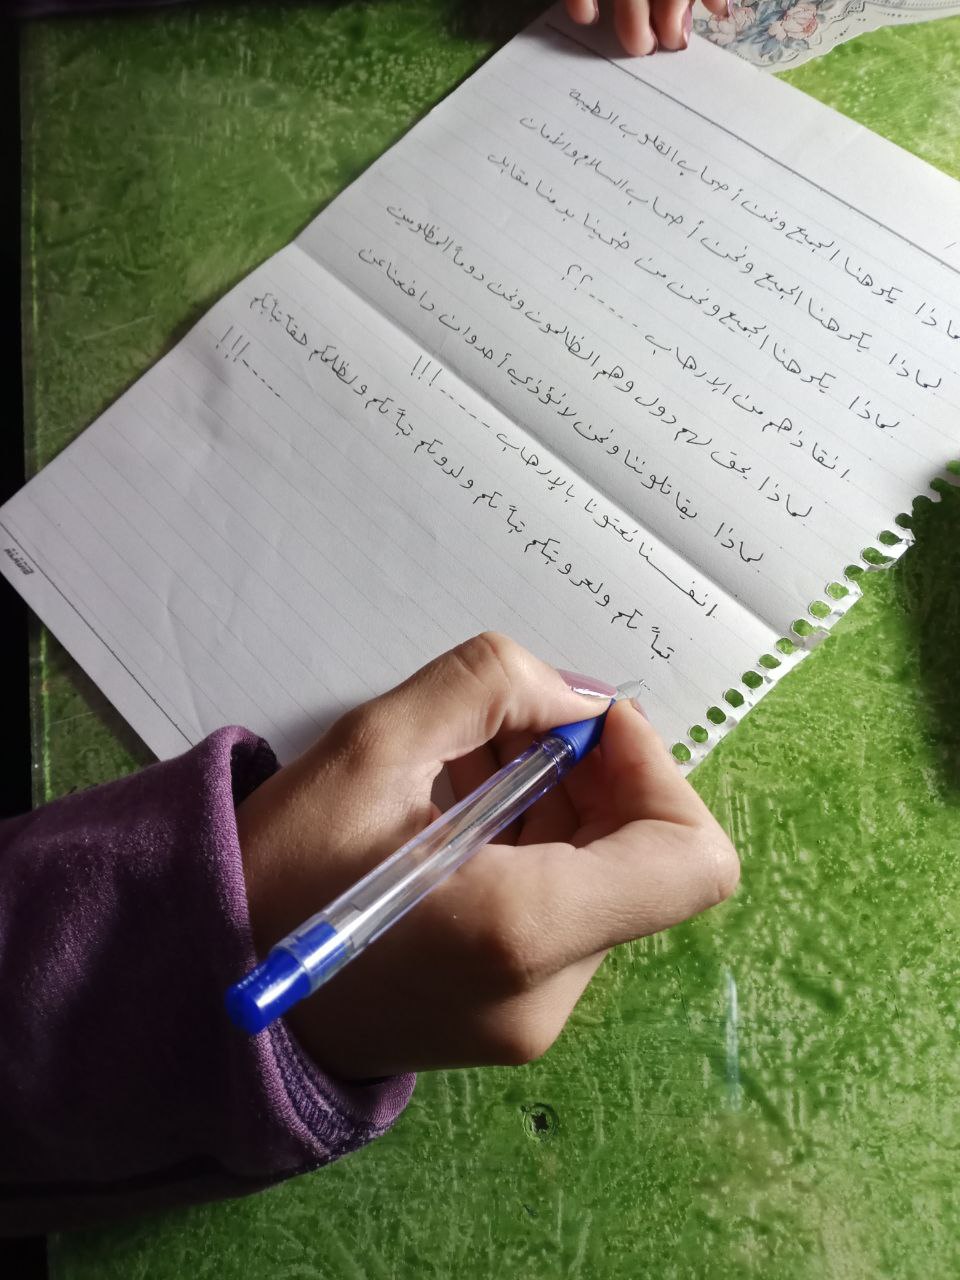 لماذا يكرهنا الجميع ونحن أصحاب القلوب الطيبة
لماذا يكرهنا الجميع ونحن أصحاب السلام والأمان
لماذا يكرهنا الجميع ونحن من ضحينا بدمنا مقابل
انقاذهم من الإرهاب -----؟؟
لماذا يحق لهم دول وهم الظالمون ونحن دوماً المظلومين
لماذا يقاتلوننا ونحن لا نؤذي أحد وان دافعنا عن
انفسنا نعتونا بالإرهاب ----!!!
تباً لكم ولعروبتكم تباً لكم ولدولكم تباً لكم ولظلمكم حقاً تباً لكم
-----!!!